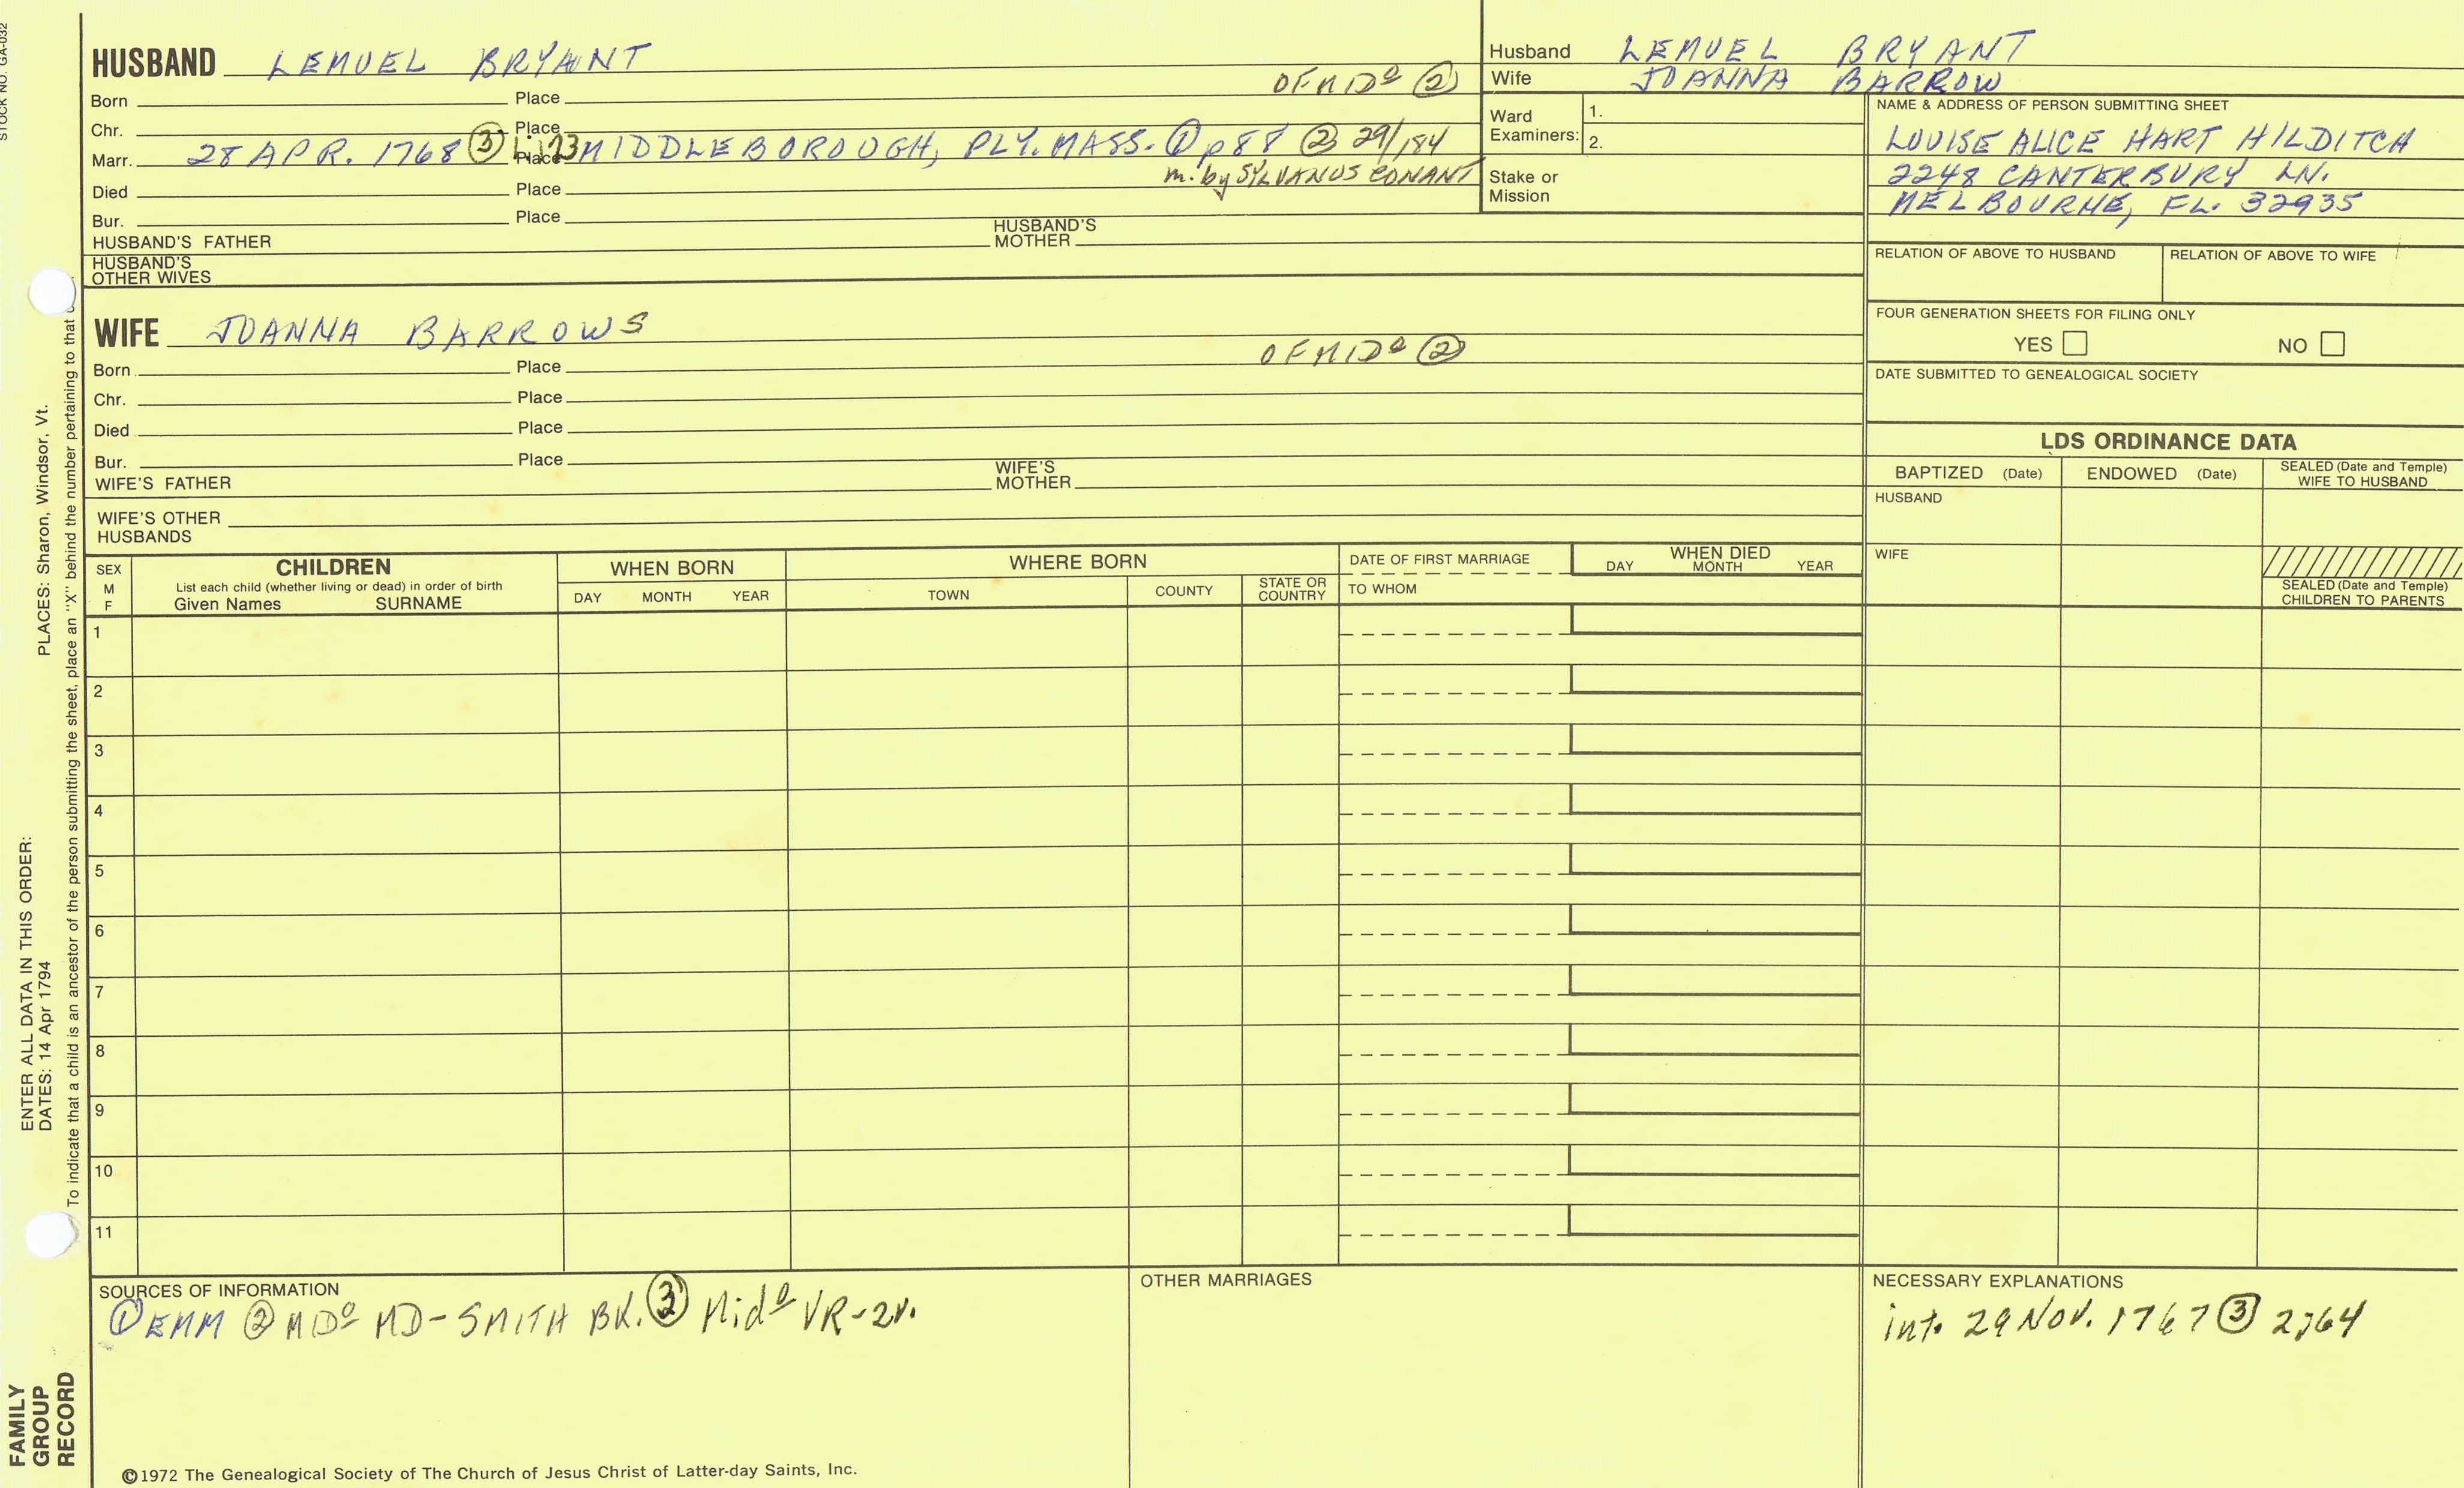 STOCK NO. GA-032
HUSBAND LEMUEL BRYANT
OF MIDº ②
Born Place
Chr. Place
Marr. 28 APR. 1768 ③ 1:123 Place MIDDLEBOROUGH, PLY. MASS. ① p88 ② 29/184
m. by SYLVANUS CONANT
Died Place
Bur. Place
HUSBAND'S FATHER HUSBAND'S MOTHER
HUSBAND'S OTHER WIVES
WIFE JOANNA BARROWS
OF MIDº ②
Born Place
Chr. Place
Died Place
Bur. Place
WIFE'S FATHER WIFE'S MOTHER
WIFE'S OTHER HUSBANDS
Husband LEMUEL BRYANT
Wife JOANNA BARROW
Ward Examiners: 1.
2.
Stake or Mission
NAME & ADDRESS OF PERSON SUBMITTING SHEET
LOUISE ALICE HART HILDITCH
2248 CANTERBURY LN.
MELBOURNE, FL. 32935
RELATION OF ABOVE TO HUSBAND RELATION OF ABOVE TO WIFE
FOUR GENERATION SHEETS FOR FILING ONLY
YES NO
DATE SUBMITTED TO GENEALOGICAL SOCIETY
LDS ORDINANCE DATA
BAPTIZED (Date) ENDOWED (Date) SEALED (Date and Temple) WIFE TO HUSBAND
HUSBAND
WIFE
SEALED (Date and Temple) CHILDREN TO PARENTS
SEX M F CHILDREN WHEN BORN WHERE BORN DATE OF FIRST MARRIAGE WHEN DIED
List each child (whether living or dead) in order of birth
Given Names SURNAME DAY MONTH YEAR TOWN COUNTY STATE OR COUNTRY TO WHOM DAY MONTH YEAR
1
2
3
4
5
6
7
8
9
10
11
SOURCES OF INFORMATION
① EMM ② MIDº MD-SMITH BK. ③ Midº VR-2v.
OTHER MARRIAGES
NECESSARY EXPLANATIONS
int. 29 Nov. 1767 ③ 2:64
©1972 The Genealogical Society of The Church of Jesus Christ of Latter-day Saints, Inc.
ENTER ALL DATA IN THIS ORDER:
DATES: 14 Apr 1794 PLACES: Sharon, Windsor, Vt.
To indicate that a child is an ancestor of the person submitting the sheet, place an "X" behind the number pertaining to that
FAMILY
GROUP
RECORD